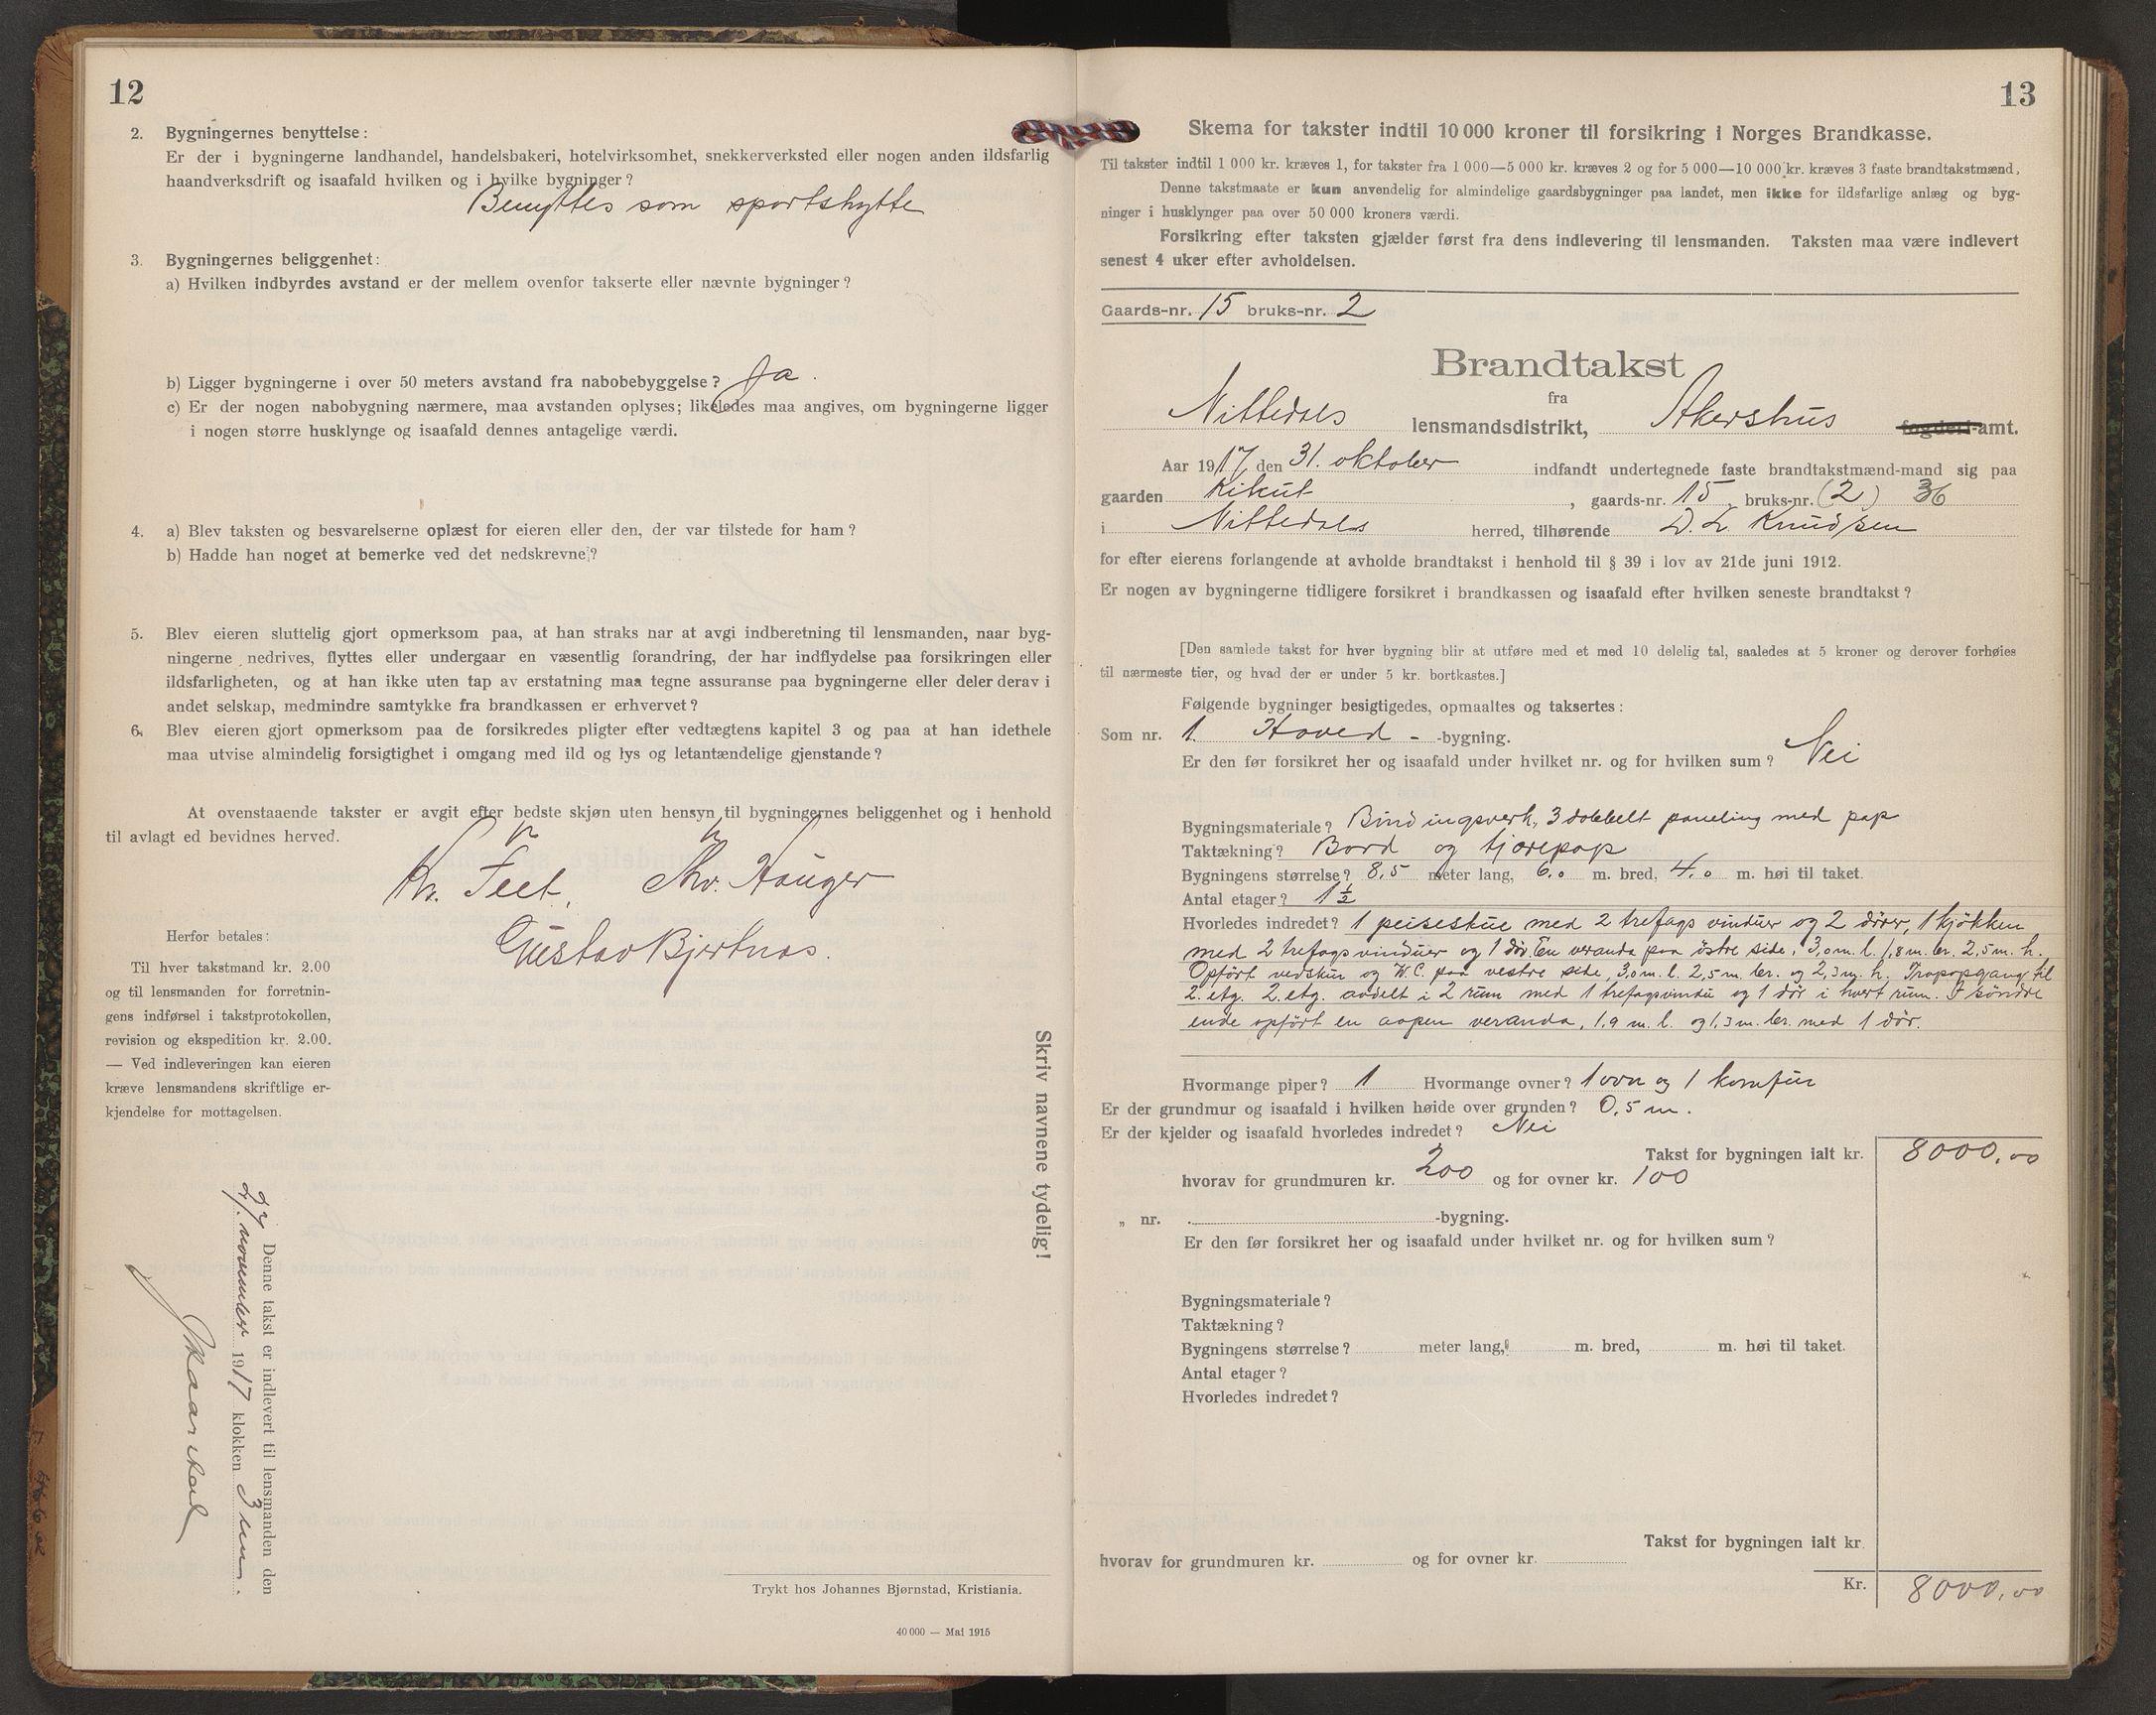 12
2. Bygningernes benyttelse:
Er der i bygningerne landhandel, handelsbakeri, hotelvirksomhet, snekkerverksted eller nogen anden ildsfarlig
haandverksdrift og isaafald hvilken og i hvilke bygninger?
Benyttes som sportshytte
3. Bygningernes beliggenhet:
a) Hvilken indbyrdes avstand er der mellem ovenfor takserte eller nævnte bygninger?
b) Ligger bygningerne i over 50 meters avstand fra nabobebyggelse? Ja.
c) Er der nogen nabobygning nærmere, maa avstanden oplyses; likeledes maa angives, om bygningerne ligger
i nogen større husklynge og isaafald dennes antagelige værdi.
4. a) Blev taksten og besvarelserne oplæst for eieren eller den, der var tilstede for ham?
b) Hadde han noget at bemerke ved det nedskrevne?
5. Blev eieren sluttelig gjort opmerksom paa, at han straks har at avgi indberetning til lensmanden, naar byg-
ningerne nedrives, flyttes eller undergaar en væsentlig forandring, der har indflydelse paa forsikringen eller
ildsfarligheten, og at han ikke uten tap av erstatning maa tegne assuranse paa bygningerne eller deler derav i
andet selskap, medmindre samtykke fra brandkassen er erhvervet?
6. Blev eieren gjort opmerksom paa de forsikredes pligter efter vedtægtens kapitel 3 og paa at han idethele
maa utvise almindelig forsigtighet i omgang med ild og lys og letantændelige gjenstande?
At ovenstaaende takster er avgit efter bedste skjøn uten hensyn til bygningernes beliggenhet og i henhold
til avlagt ed bevidnes herved.
Kr. Teet, Thv. Hauger
Gustav Bjertnæs.
Herfor betales:
Til hver takstmand kr. 2.00
og til lensmanden for forretnin-
gens indførsel i takstprotokollen,
revision og ekspedition kr. 2.00.
— Ved indleveringen kan eieren
kræve lensmandens skriftlige er-
kjendelse for mottagelsen.
Skriv navnene tydelig!
Denne takst er indlevert til lensmanden den
27. november 1917 klokken 3 em.
Trykt hos Johannes Bjørnstad, Kristiania.
40 000 — Mai 1915
13
Skema for takster indtil 10 000 kroner til forsikring i Norges Brandkasse.
Til takster indtil 1 000 kr. kræves 1, for takster fra 1 000—5 000 kr. kræves 2 og for 5 000—10 000 kr. kræves 3 faste brandtakstmænd.
Denne takstmaate er kun anvendelig for almindelige gaardsbygninger paa landet, men ikke for ildsfarlige anlæg og byg-
ninger i husklynger paa over 50 000 kroners værdi.
Forsikring efter taksten gjælder først fra dens indlevering til lensmanden. Taksten maa være indlevert
senest 4 uker efter avholdelsen.
Gaards-nr. 15 bruks-nr. 2
Brandtakst
fra
Nittedals lensmandsdistrikt, Akershus fogderi-amt.
Aar 1917 den 31. oktober indfandt undertegnede faste brandtakstmænd-mand sig paa
gaarden Kikut, gaards-nr. 15, bruks-nr. (2) 36
i Nittedals herred, tilhørende D. L. Knudsen
for efter eierens forlangende at avholde brandtakst i henhold til § 39 i lov av 21de juni 1912.
Er nogen av bygningerne tidligere forsikret i brandkassen og isaafald efter hvilken seneste brandtakst?
[Den samlede takst for hver bygning blir at utføre med et med 10 delelig tal, saaledes at 5 kroner og derover forhøies
til nærmeste tier, og hvad der er under 5 kr. bortkastes.]
Følgende bygninger besigtigedes, opmaaltes og taksertes:
Som nr. 1. Hoved- -bygning.
Er den før forsikret her og isaafald under hvilket nr. og for hvilken sum? Nei
Bygningsmateriale? Bindingsverk, 3 dobbelt paneling med pap
Taktækning? Bord og tjærepap
Bygningens størrelse? 8,5 meter lang, 6,0 m. bred, 4,0 m. høi til taket.
Antal etager? 1 ½
Hvorledes indredet? 1 peisestue med 2 trefags vinduer og 2 dører, 1 kjøkken
med 2 trefagsvinduer og 1 dör. En veranda paa östre side, 3,0 m. l. 1,8 m. br. 2,5 m. h.
Opfört vedskur og W.C. paa vestre side, 3,0 m. l. 2,5 m. br. og 2,3 m. h. Trapopgang til
2. etg. 2. etg. avdelt i 2 rum med 1 trefagsvindu og 1 dör i hvert rum. I söndre
ende opfört en aapen veranda, 1,9 m. l. og 1,3 m. br. med 1 dör.
Hvormange piper? 1 Hvormange ovner? 1 ovn og 1 komfur
Er der grundmur og isaafald i hvilken høide over grunden? 0,5 m.
Er der kjelder og isaafald hvorledes indredet? Nei
Takst for bygningen ialt kr. 8000,00
hvorav for grundmuren kr. 200 og for ovner kr. 100
„ nr. -bygning.
Er den før forsikret her og isaafald under hvilket nr. og for hvilken sum?
Bygningsmateriale?
Taktækning?
Bygningens størrelse? meter lang, m. bred, m. høi til taket.
Antal etager?
Hvorledes indredet?
Takst for bygningen ialt kr.
hvorav for grundmuren kr. og for ovner kr.
Kr. 8000,00